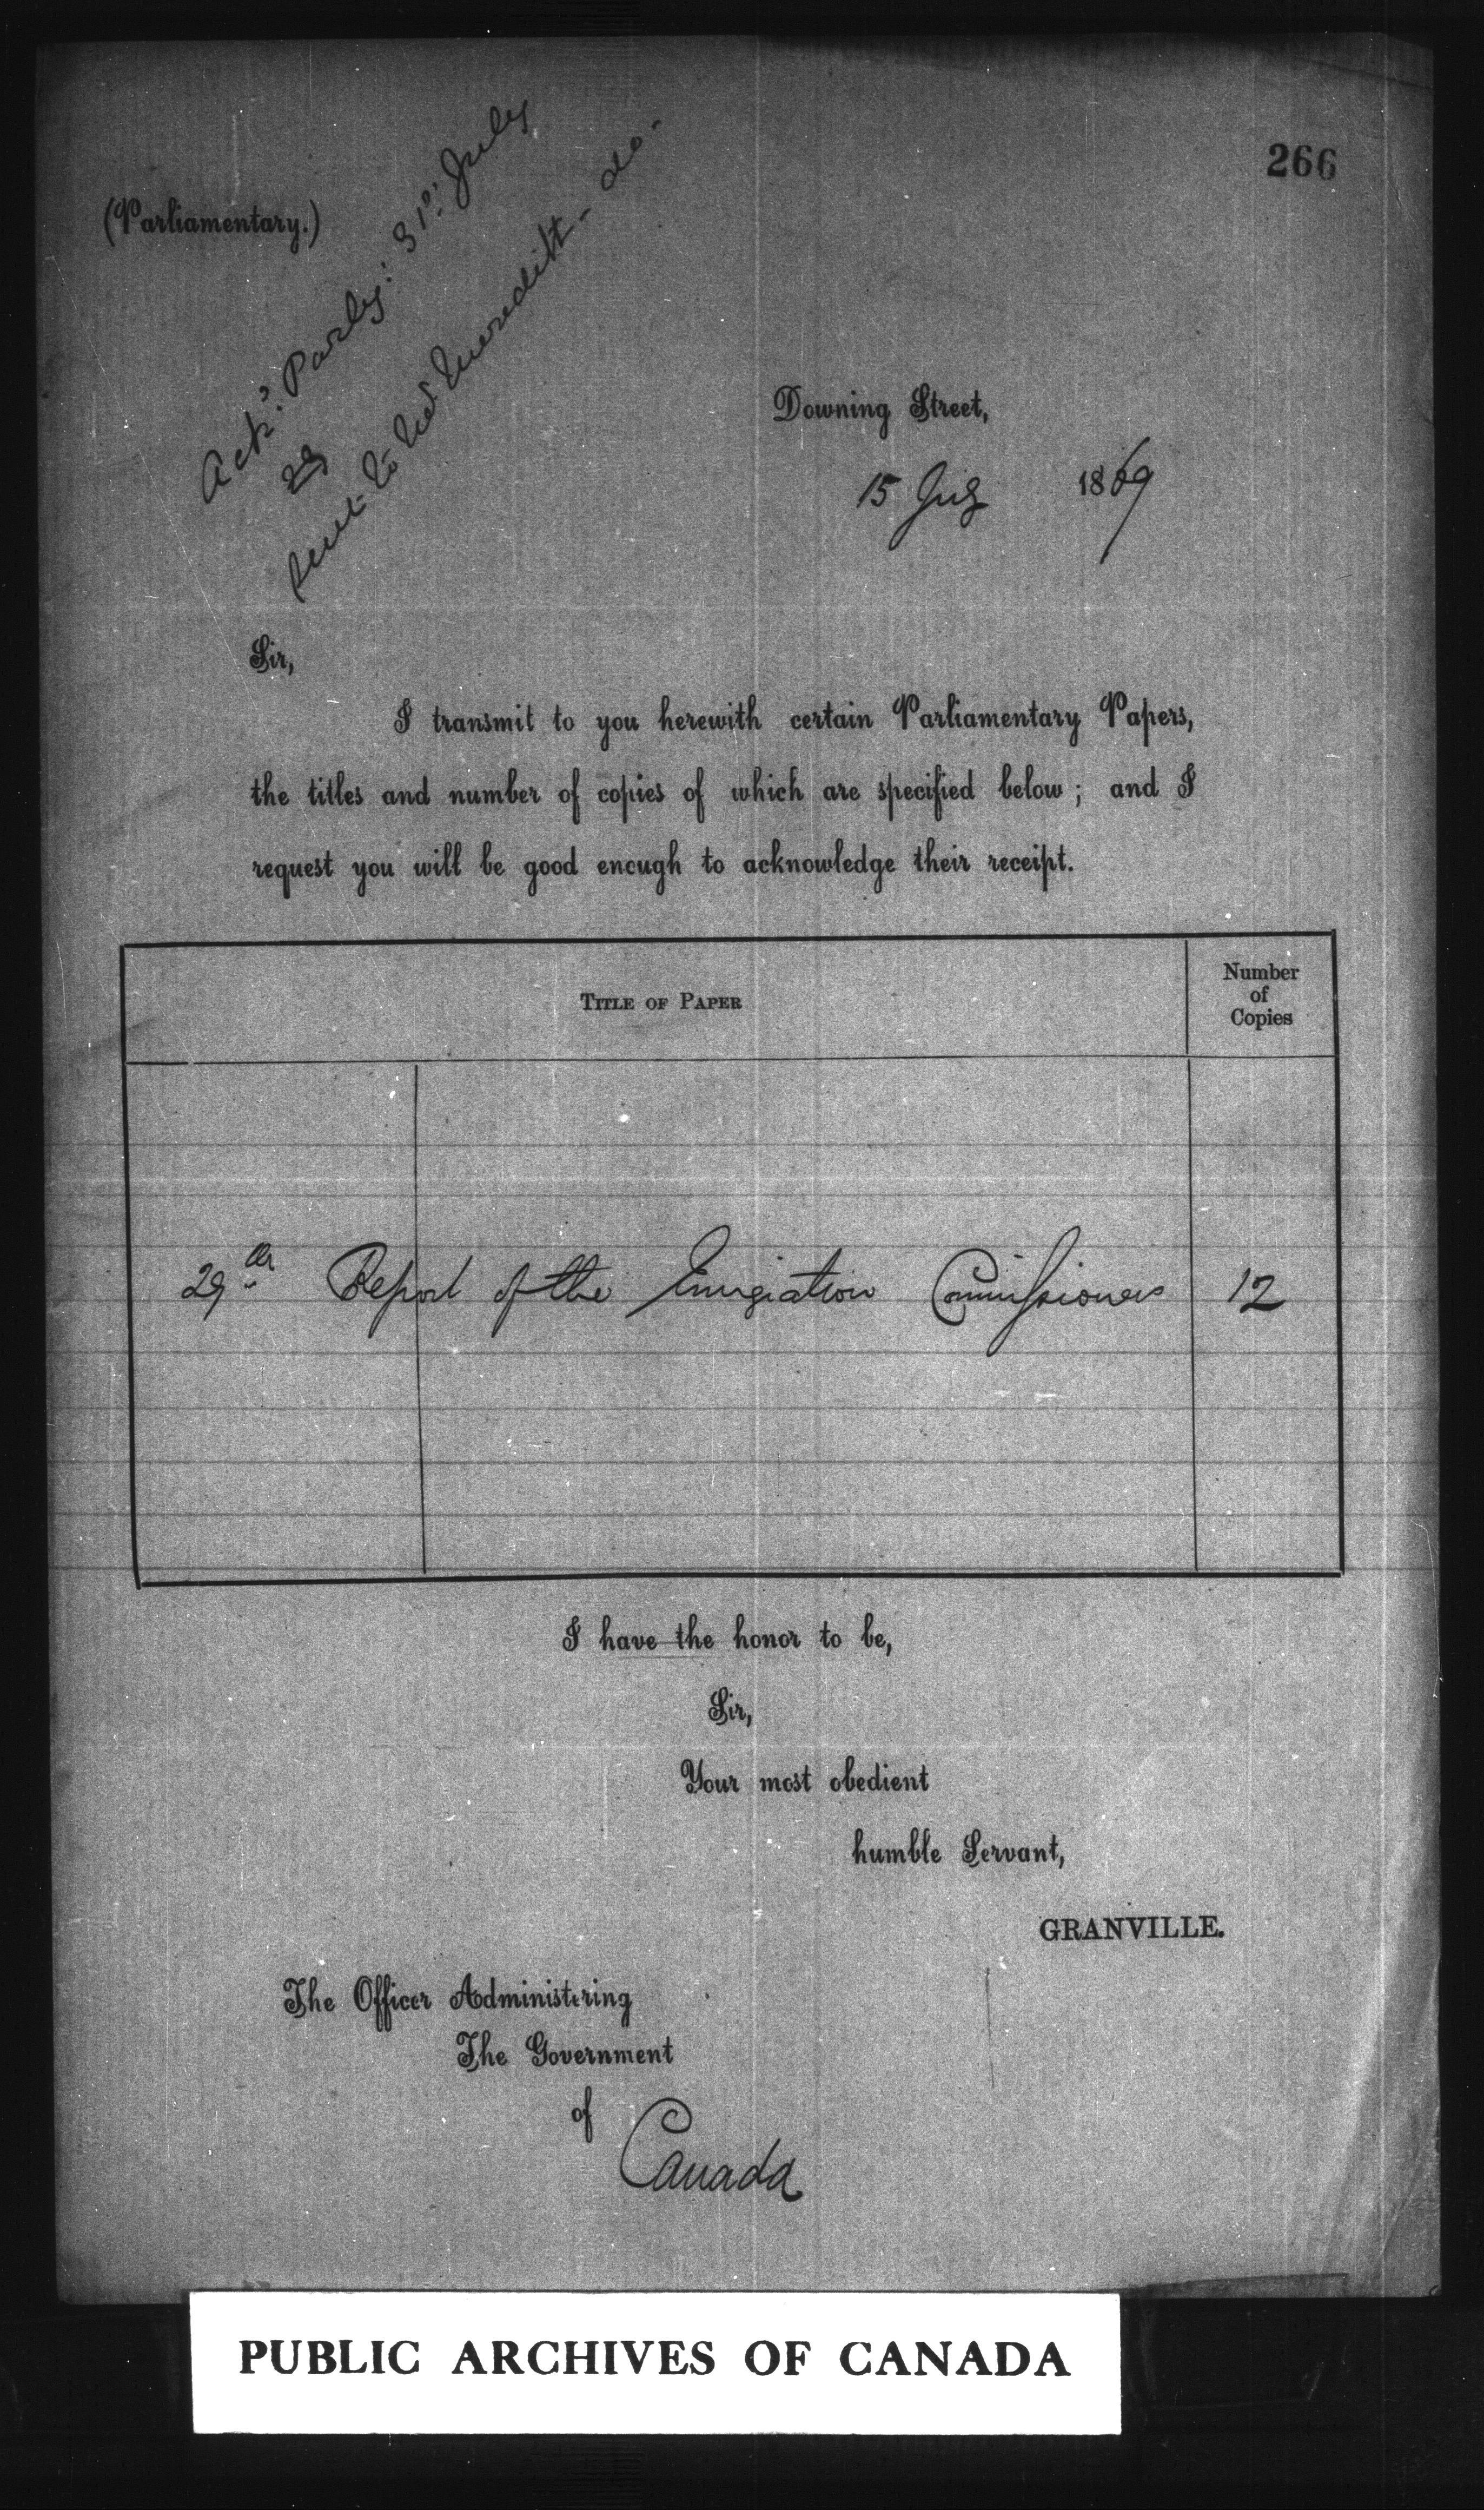 266
(Parliamentary.)
Ackd. Parly: 31st: July
29
sent to Mr Meredith - do -
Downing Street,
15 July 1869
Sir,
I transmit to you herewith certain Parliamentary Papers,
the titles and number of copies of which are specified below; and I
request you will be good enough to acknowledge their receipt.
TITLE OF PAPER
Number
of
Copies
29th Report of the Emigration Commissioners 12
I have the honor to be,
Sir,
Your most obedient
humble Servant,
GRANVILLE.
The Officer Administering
The Government
of
Canada
PUBLIC ARCHIVES OF CANADA